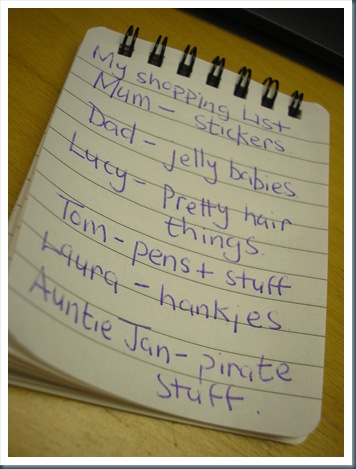 My shopping List
Mum - stickers
Dad - jelly babies
Lucy - Pretty hair
things.
Tom - pens + stuff
Laura - hankies
Auntie Jan - pirate
stuff.